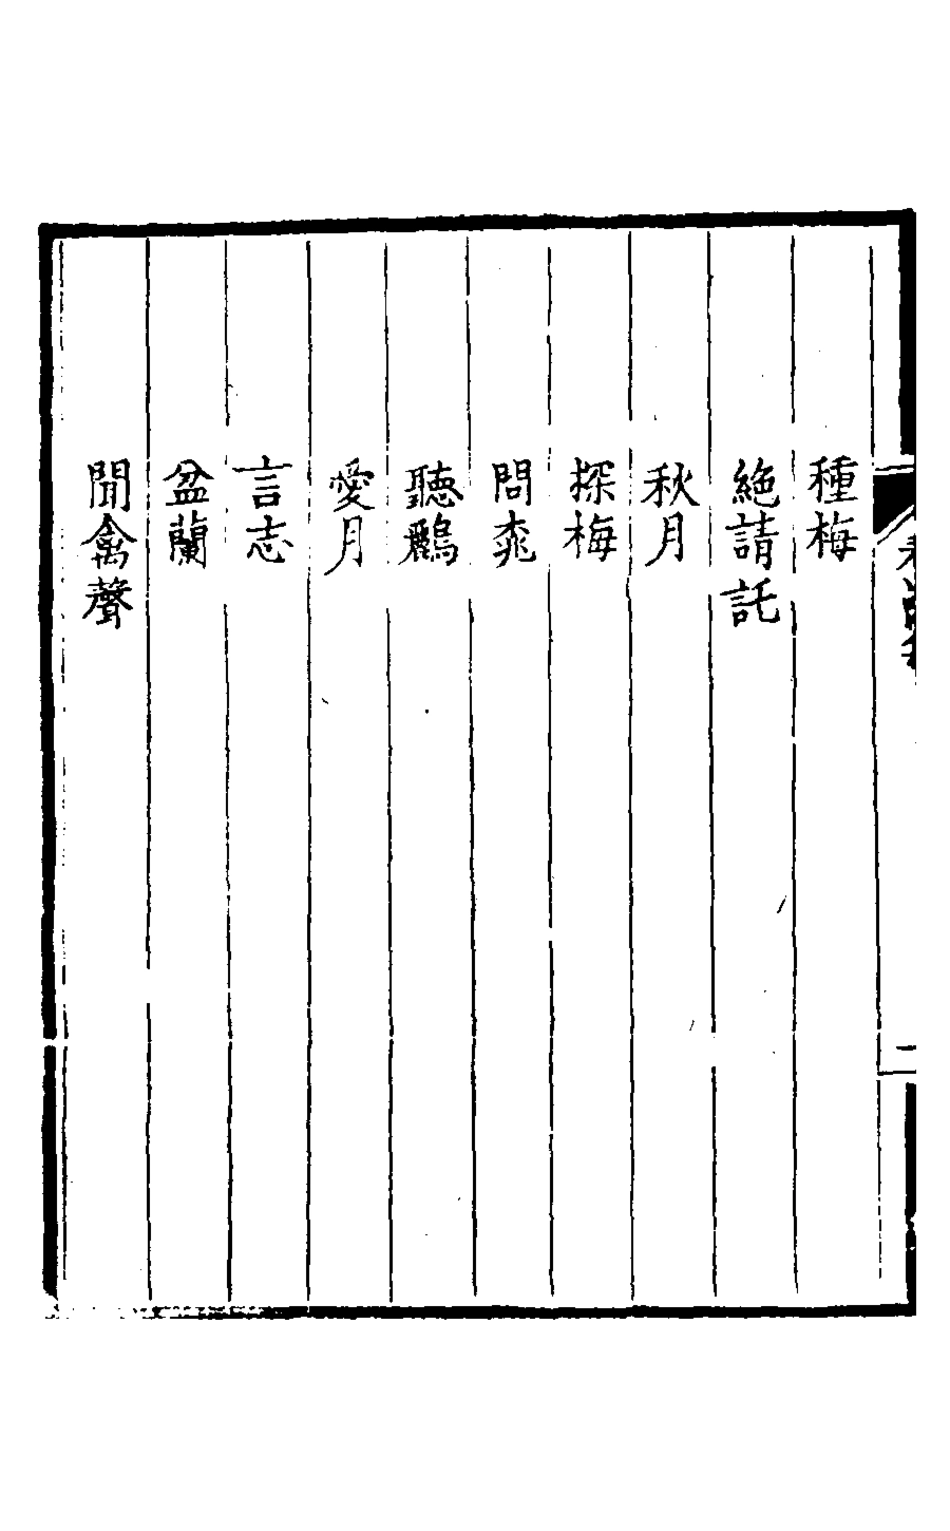 種梅
絕請託
秋月
探梅
問桃
聽鸝
愛月
言志
盆蘭
聞禽聲
二